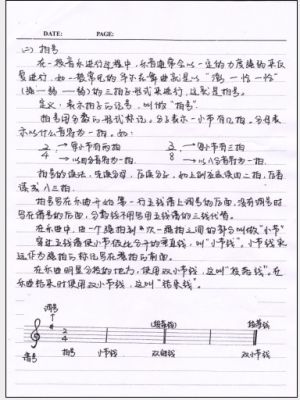 DATE: PAGE:
(二) 拍号
在一段音乐进行过程中,乐音通常会以一定的力度循环来反
复进行,如一段常见的华尔兹舞曲就是以“澎一恰一恰”
(强—弱—弱)的三拍子形式来进行,这就是拍号。
定义:表示拍子的记号,叫做“拍号”。
拍号用分数的形式标记。分子表示一小节有几拍,分母表
示以什么音符为一拍。如:
2/4 → 每小节有两拍 → 以四分音符为一拍. 3/8 → 每小节有三拍 → 以八分音符为一拍.
拍号的读法,先读分母,后读分子,如上例应读四二拍,后者
读 八三拍.
拍号写在乐曲开始第一行五线谱上调号的后面,没有调号时
写在谱号的后面,分数线不用写用五线谱的三线代替。
在乐曲中,由一个强拍到次一强拍之间的部分叫做“小节”
穿过五线谱使小节彼此分开的垂直线,叫“小节线”,小节线永
远作为强拍的标记写在强拍的前面。
在乐曲明显分段的地方,使用双小节线,这叫“段落线”。在
乐曲结束时使用双小节线,这叫“结束线”。
调号
(段落线) 结束线
2/4
谱号 拍号 小节线 双纵线 双小节线